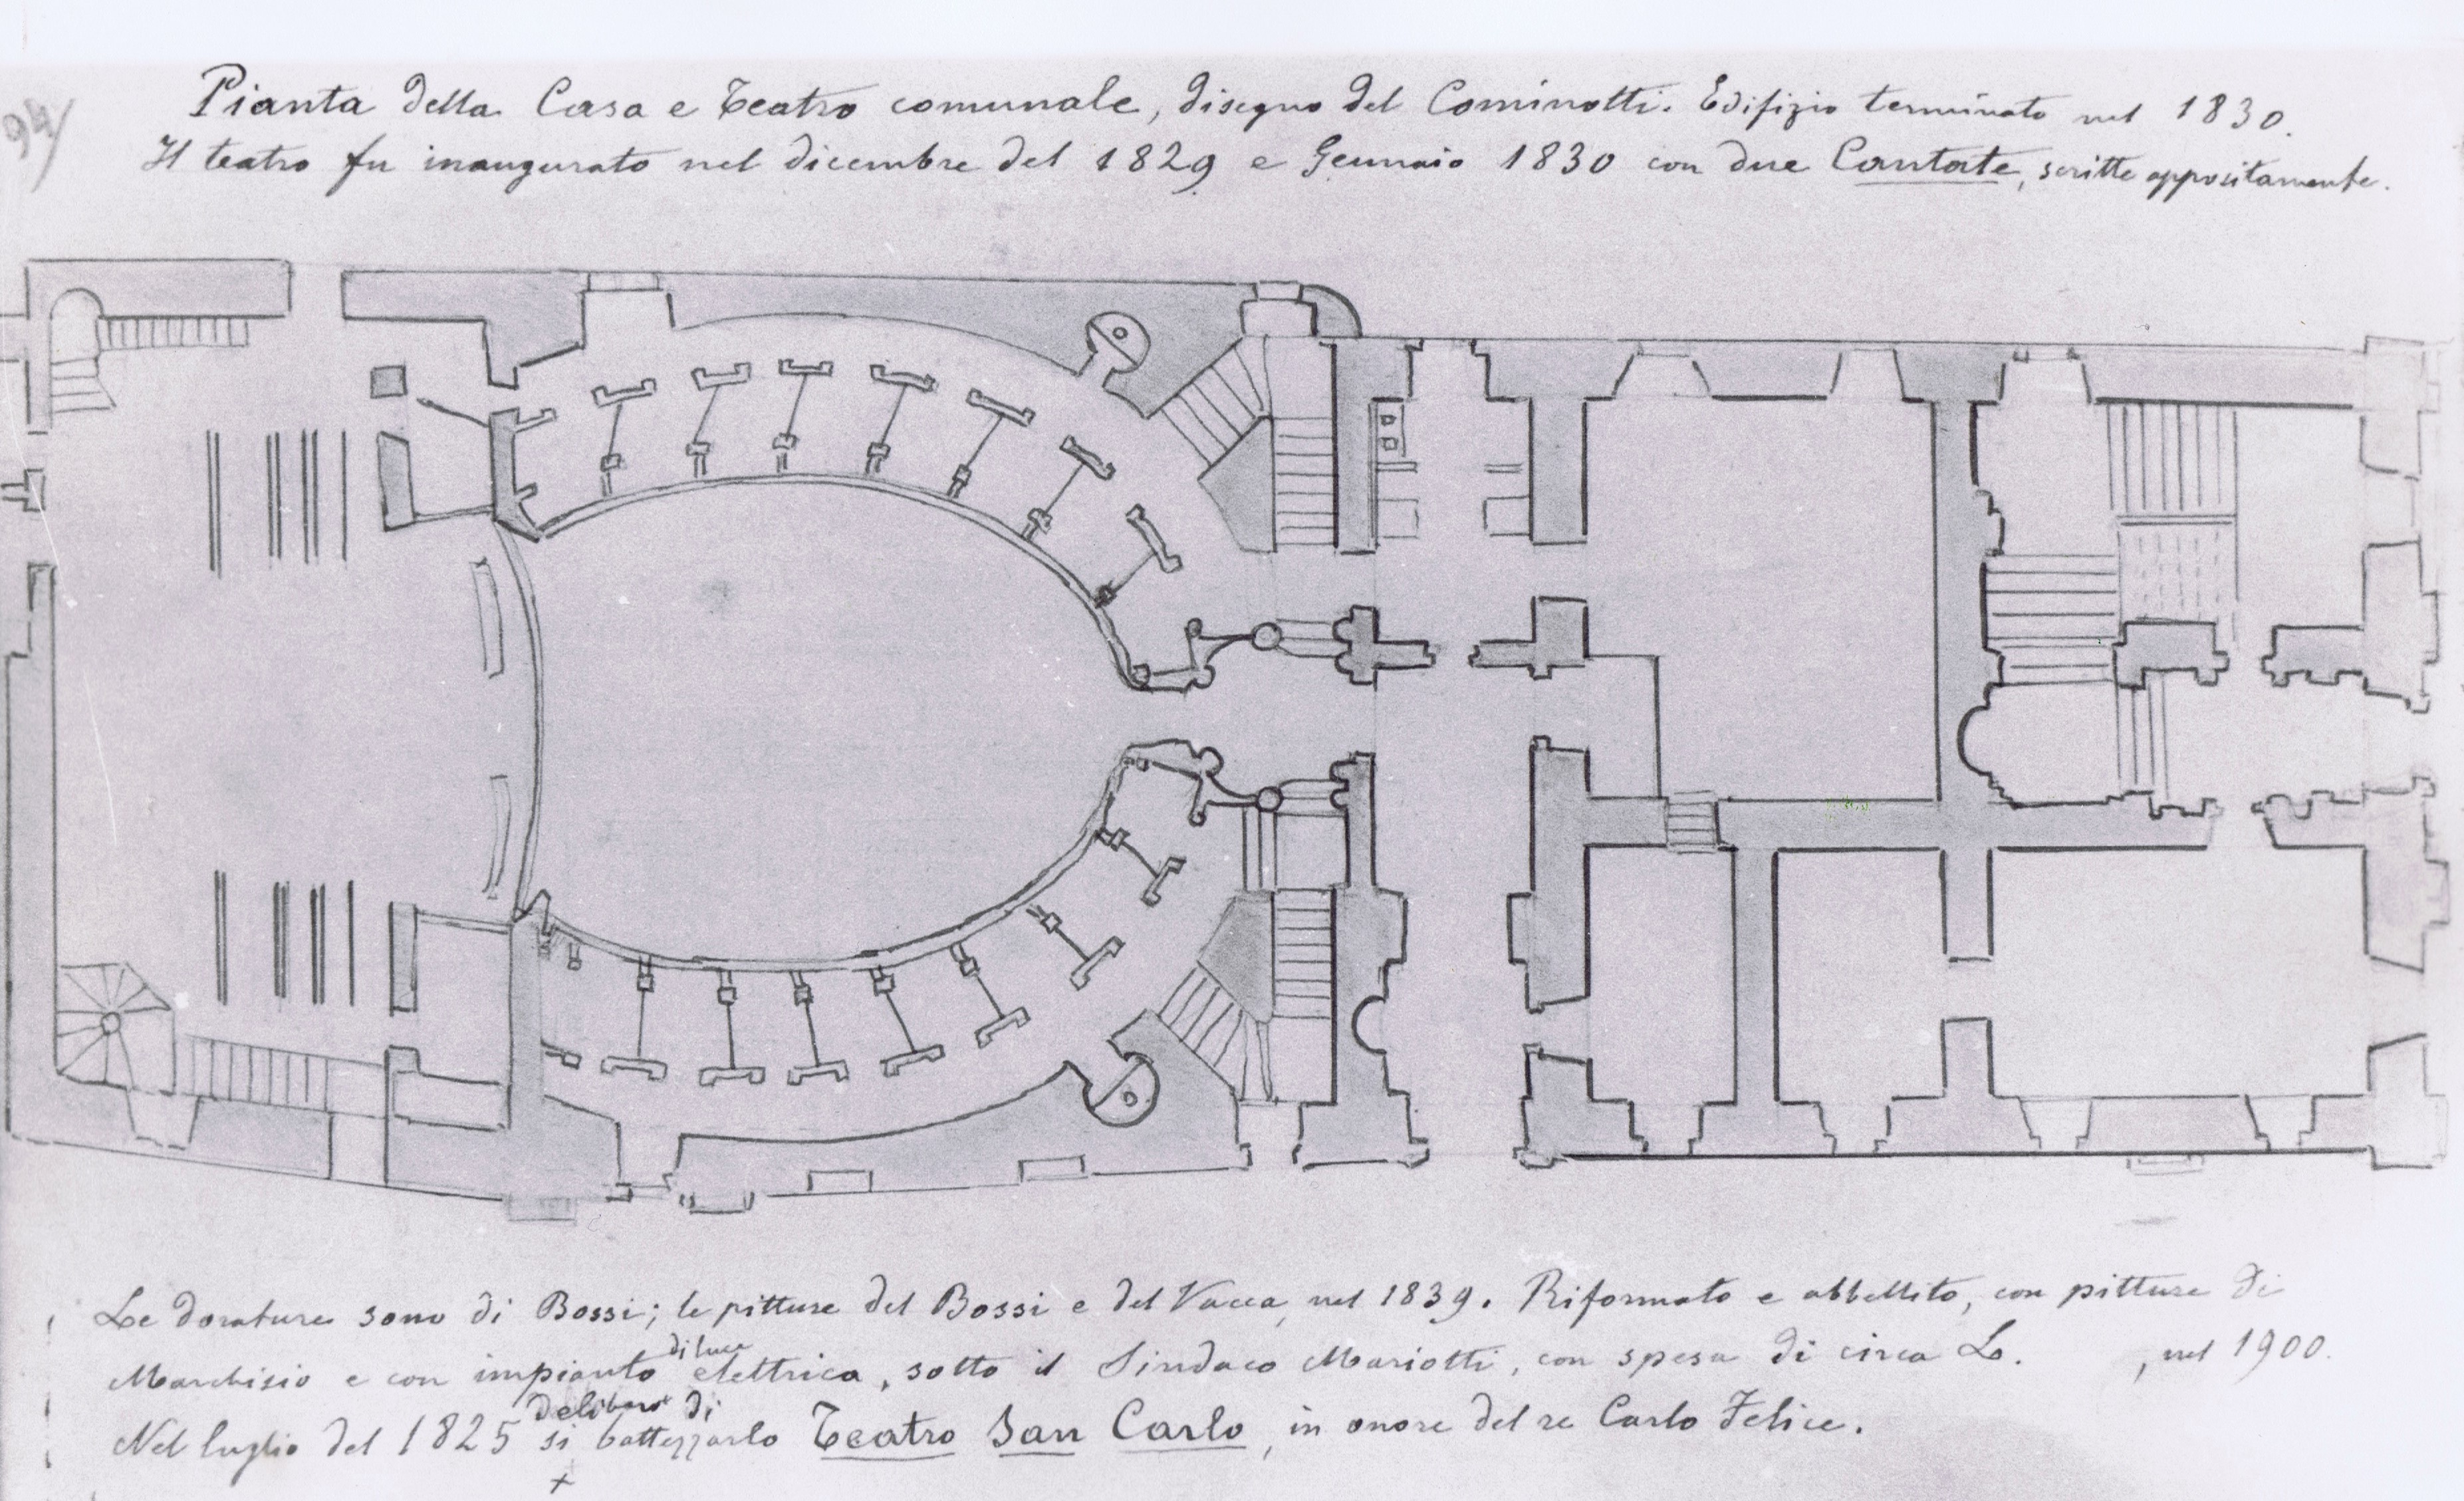 94/
Pianta della Casa e Teatro comunale, disegno del Cominotti. Edifizio terminato nel 1830.
Il teatro fu inaugurato nel dicembre del 1829 e Gennaio 1830 con due Cantate, scritte appositamente.
Le dorature sono di Bossi; le pitture del Bossi e del Vacca, nel 1839. Riformato e abbellito, con pitture di
di luce
Marchisio e con impianto elettrica, sotto il Sindaco Mariotti, con spesa di circa L. , nel 1900.
deliberò di
Nel luglio del 1825 si battezzarlo Teatro San Carlo, in onore del re Carlo Felice.
+